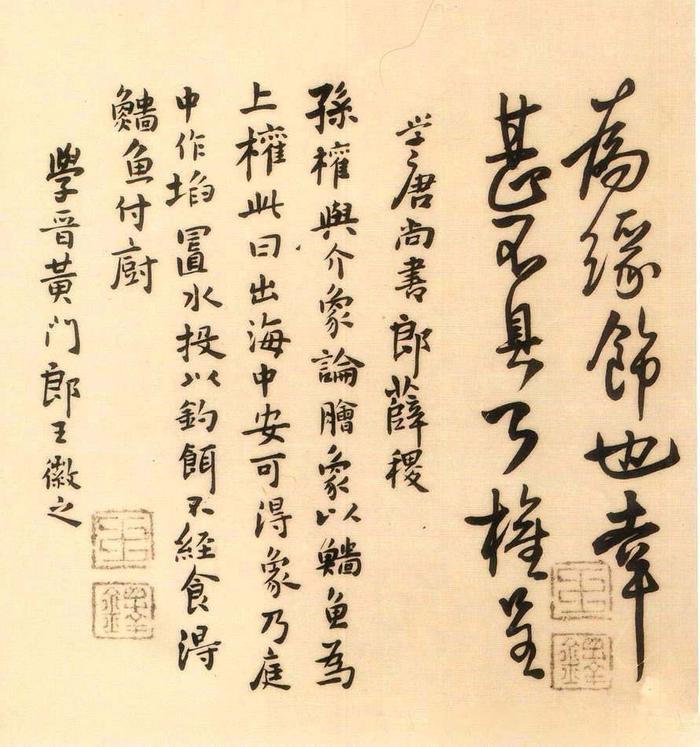 為緣飾也幸
甚不具了權呈
学唐尚書郎薛稷
孫權與介象論膾象以鯔魚為
上權此曰出海中安可得象乃庭
中作埳置水投以釣餌不經食得
鯔魚付廚
學晉黃門郎王徽之
王
鐸
王
鐸